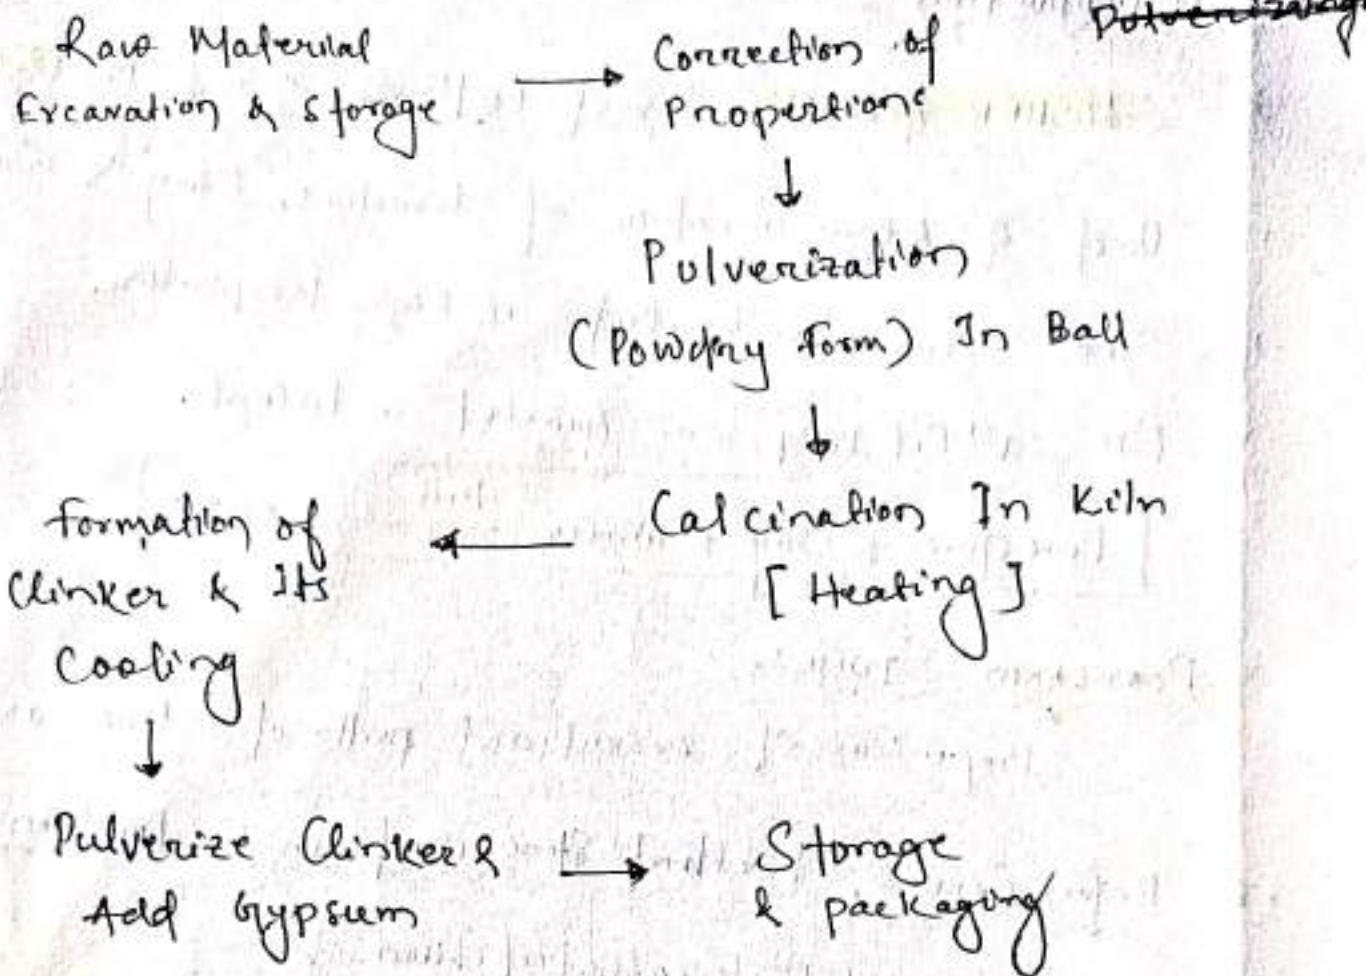 Raw Material
Excavation & Storage
Correction of
Propertions
Pulverization
(Powdery form) In Ball
Calcination In Kiln
[Heating]
Formation of
Clinker & Its
Cooling
Pulverize Clinker &
Add Gypsum
Storage
& packaging